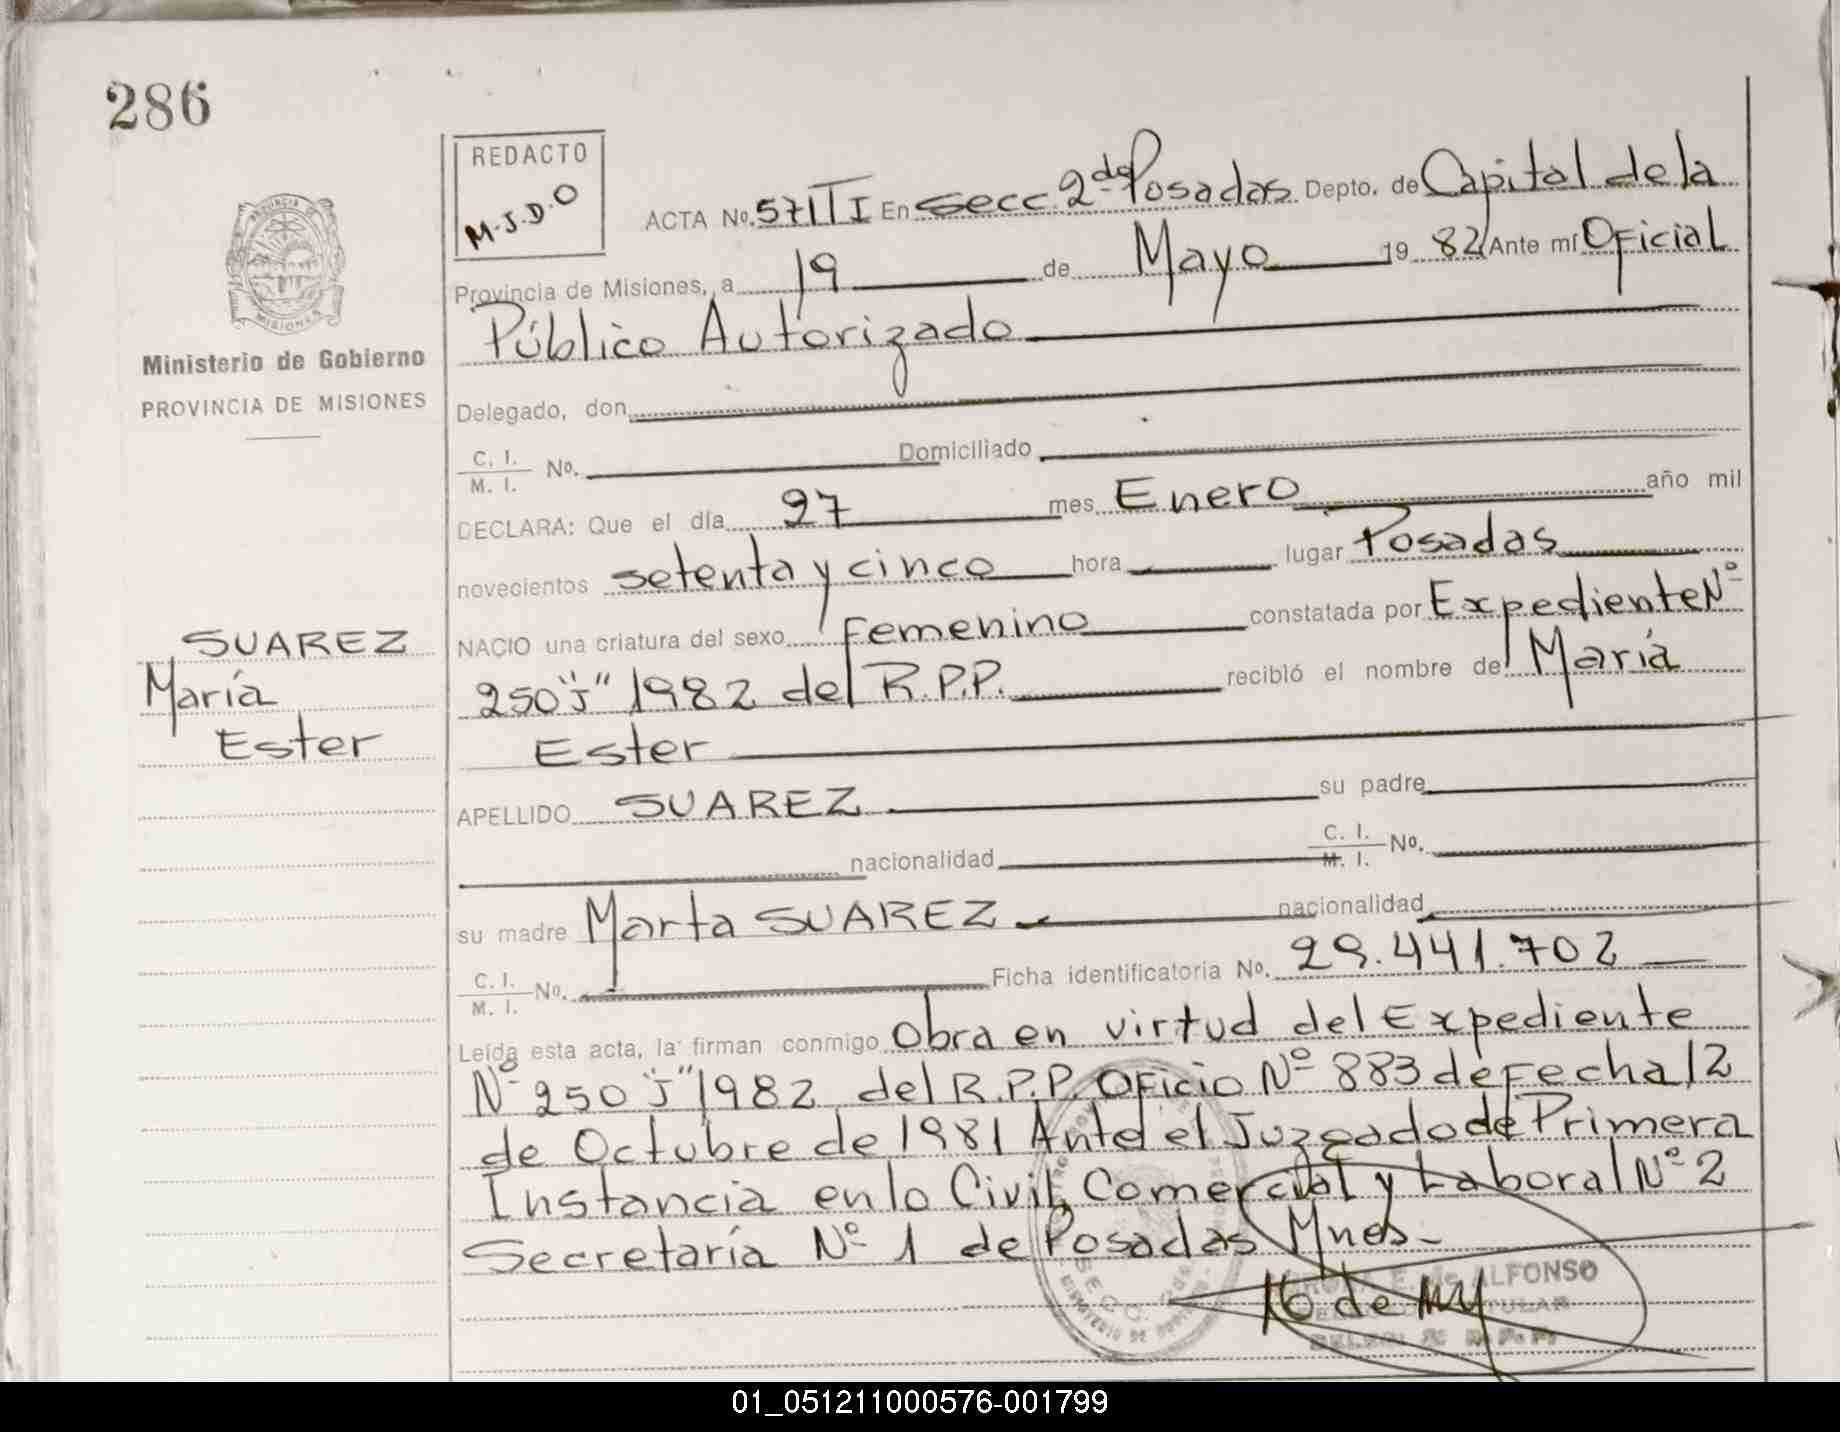 286
REDACTO
M.J.D.O
PROVINCIA DE
MISIONES
Ministerio de Gobierno
PROVINCIA DE MISIONES
SUAREZ
María
Ester
ACTA No. 57 TI En Secc. 2da Posadas Depto. de Capital de la
Provincia de Misiones, a 19 de Mayo 1982 Ante mí Oficial
Público Autorizado
Delegado, don
C. I. M. I. No. Domiciliado
DECLARA: Que el día 27 mes Enero año mil
novecientos setenta y cinco hora lugar Posadas
NACIO una criatura del sexo Femenino constatada por Expediente Nº
250 "J" 1982 del R.P.P. recibió el nombre de María
Ester
APELLIDO SUAREZ su padre
nacionalidad C. I. M. I. No.
su madre Marta SUAREZ nacionalidad
C. I. M. I. No. Ficha identificatoria No. 29.441.702
Leída esta acta, la firman conmigo Obra en virtud del Expediente
Nº 250 "J" 1982 del R.P.P. Oficio Nº 883 de Fecha 12
de Octubre de 1981 Ante el Juzgado de Primera
Instancia en lo Civil, Comercial y Laboral Nº 2
Secretaría Nº 1 de Posadas Mnes.
E. de ALFONSO
TULAR
01_051211000576-001799